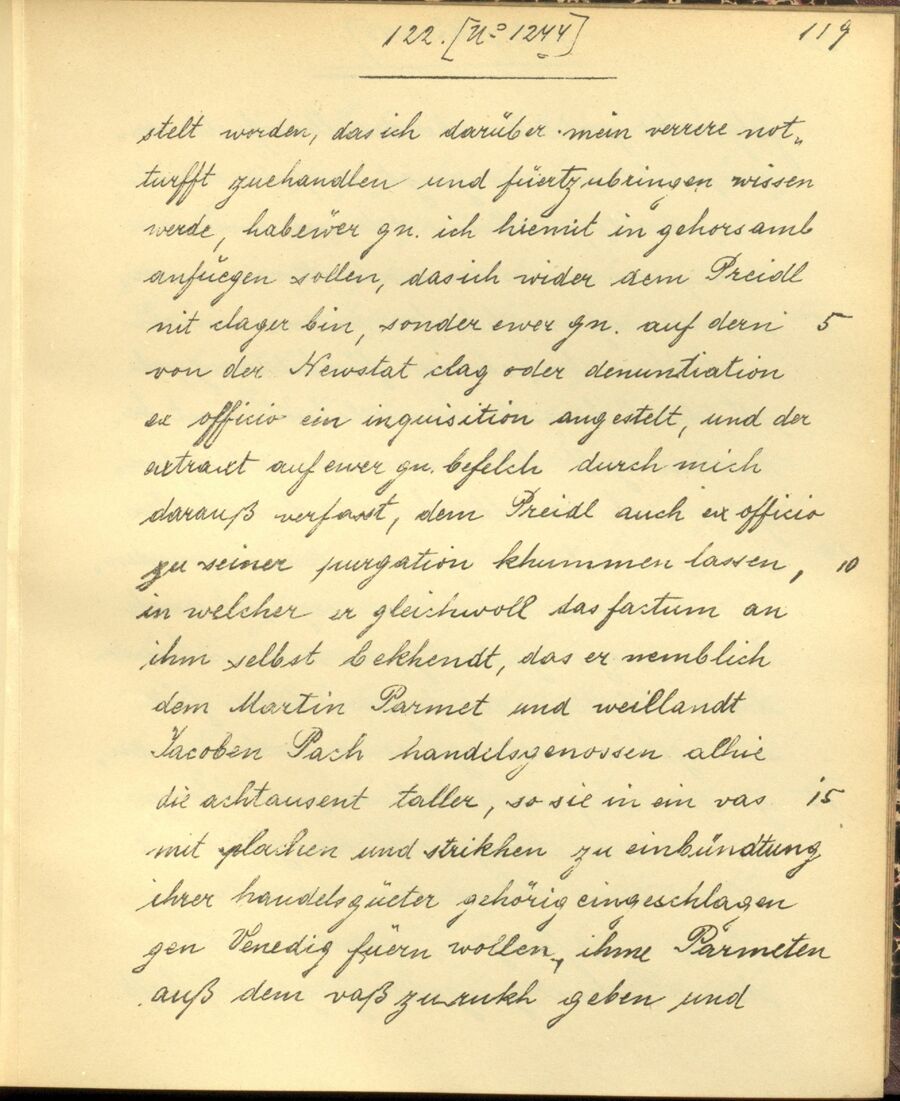 122. [No 1244] 119
stelt worden, das ich darüber mein verrere not„
turfft zuehandlen und füertzubringen wissen
werde, hab ewer gn. ich hiemit in gehorsamb
anfüegen sollen, das ich wider dem Preidl
nit clager bin, sonder ewer gn. auf dern 5
von der Newstat clag oder denuntiation
ex officio ein inquisition angestelt, und der
extraxt auf ewer gn. befelch durch mich
darauß verfasst, dem Preidl auch ex officio
zu seiner purgation khummen lassen, 10
in welcher er gleichwoll das factum an
ihm selbst bekhendt, das er nemblich
dem Martin Parmet und weillandt
Jacoben Pach handelsgenossen alhie
die achtausent taller, so sie in ein vas 15
mit plachen und strikhen zu einbündtung
ihrer handelsgüeter gehörig eingeschlagen
gen Venedig füern wollen, ihme Parmeten
auß dem vaß zurukh geben und